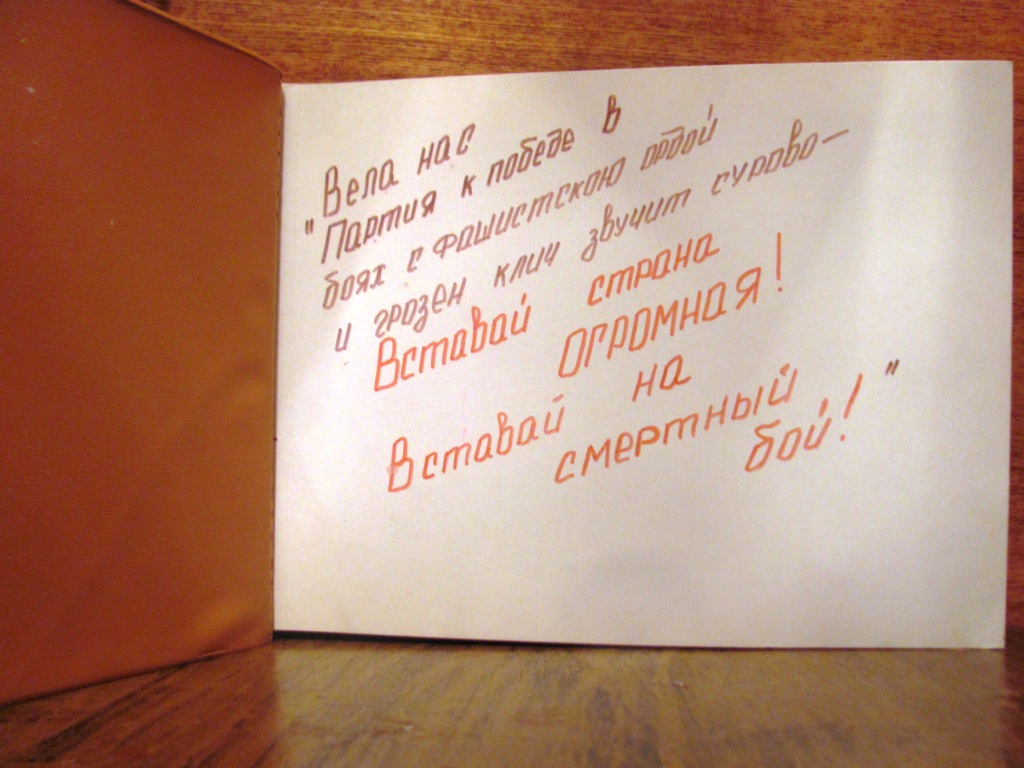 Вела нас
"Партия к победе в
боях с фашистскою ордой
и грозен клич звучит сурово—
Вставай страна
ОГРОМНАЯ!
Вставай на
смертный
бой!"